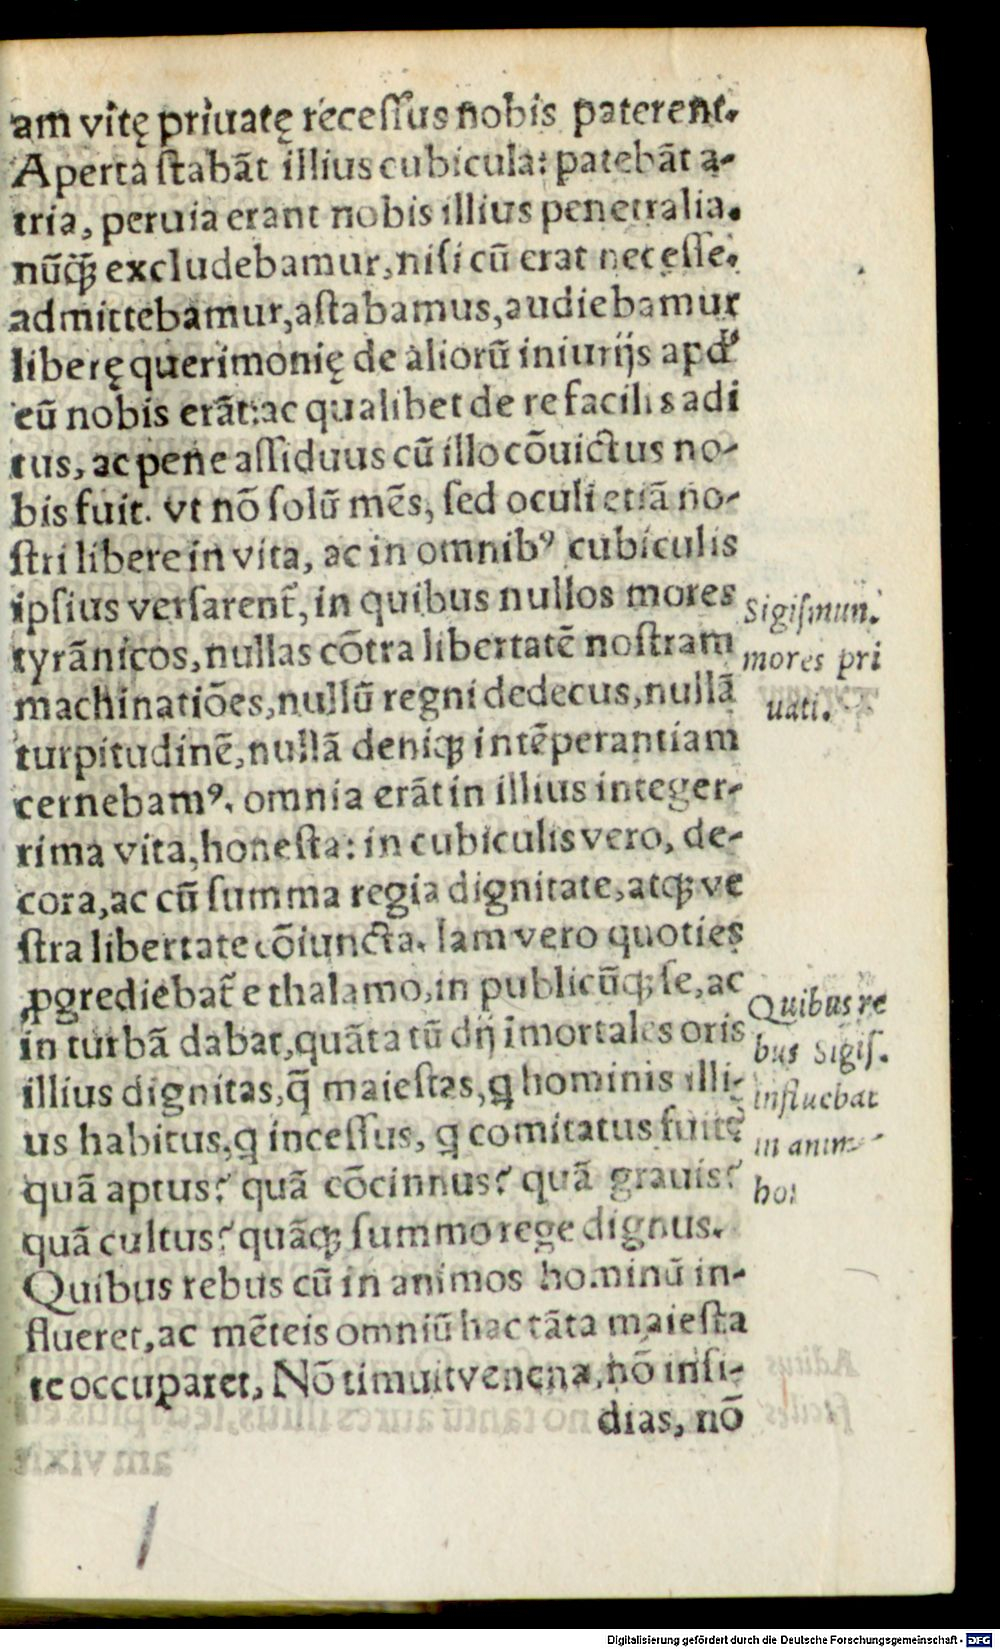 am vitę priuatę recessus nobis paterent.
Aperta stabāt illius cubicula: patebāt a-
tria, peruia erant nobis illius penetralia.
nūꝙ̃ excludebamur, nisi cū erat necesse.
admittebamur, astabamus, audiebamur
liberę querimonię de aliorū iniurijs apđ
eū nobis erāt: ac qualibet de re facilis adi
tus, ac pene assiduus cū illo cōuictus no-
bis fuit. vt nō solū mēs, sed oculi etiā no-
stri libere in vita, ac in omnibꝰ cubiculis
ipsius versarent̃, in quibus nullos mores
tyrānicos, nullas cōtra libertatē nostram
machinatiōes, nullū regni dedecus, nullā
turpitudinē, nullā deniqꝫ intēperantiam
cernebamꝰ. omnia erāt in illius integer-
rima vita, honesta: in cubiculis vero, de-
cora, ac cū summa regia dignitate, atqꝫ ve
stra libertate cōiuncta. Iam vero quoties
ꝓgrediebat̃ e thalamo, in publicūqꝫ se, ac
in turbā dabat, quāta tū dij īmortales oris
illius dignitas, q̄ maiestas, ꝗ hominis illi-
us habitus, ꝗ incessus, ꝗ comitatus fuit?
quā aptus? quā cōcinnus? quā grauis?
quā cultus? quāqꝫ summo rege dignus.
Quibus rebus cū in animos hominū in-
flueret, ac mēteis omniū hac tāta maiesta
te occuparet, Nō timuit venena, nō insi-
dias, nō
Sigismun.
mores pri
uati.
Quibus re
bus Sigis.
influebat
in anim
ho
Digitalisierung gefördert durch die Deutsche Forschungsgemeinschaft - DFG